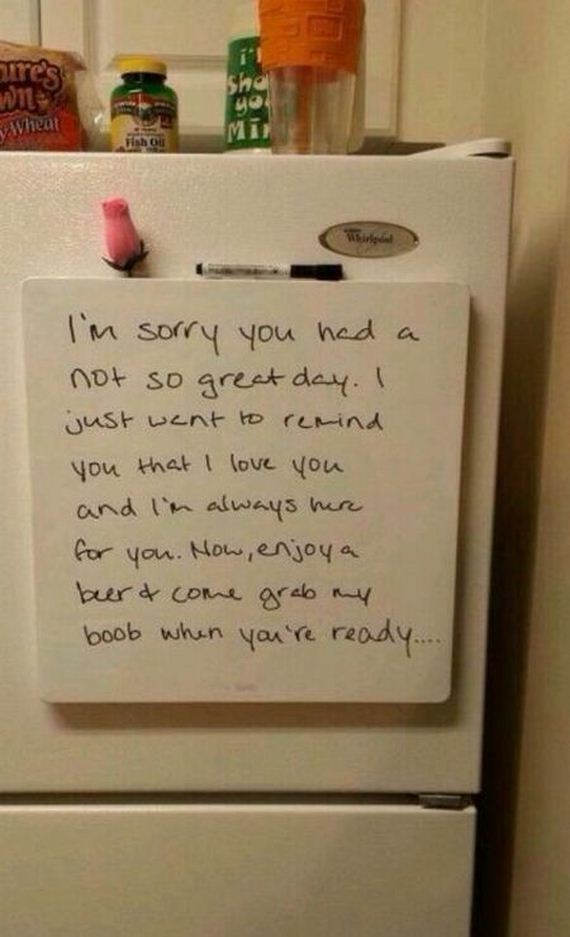 Wheat
Fish Oil
i'll
sho
you
Mi
Whirlpool
I'm sorry you had a
not so great day. I
just want to remind
you that I love you
and I'm always here
for you. Now, enjoy a
beer & come grab my
boob when you're ready....